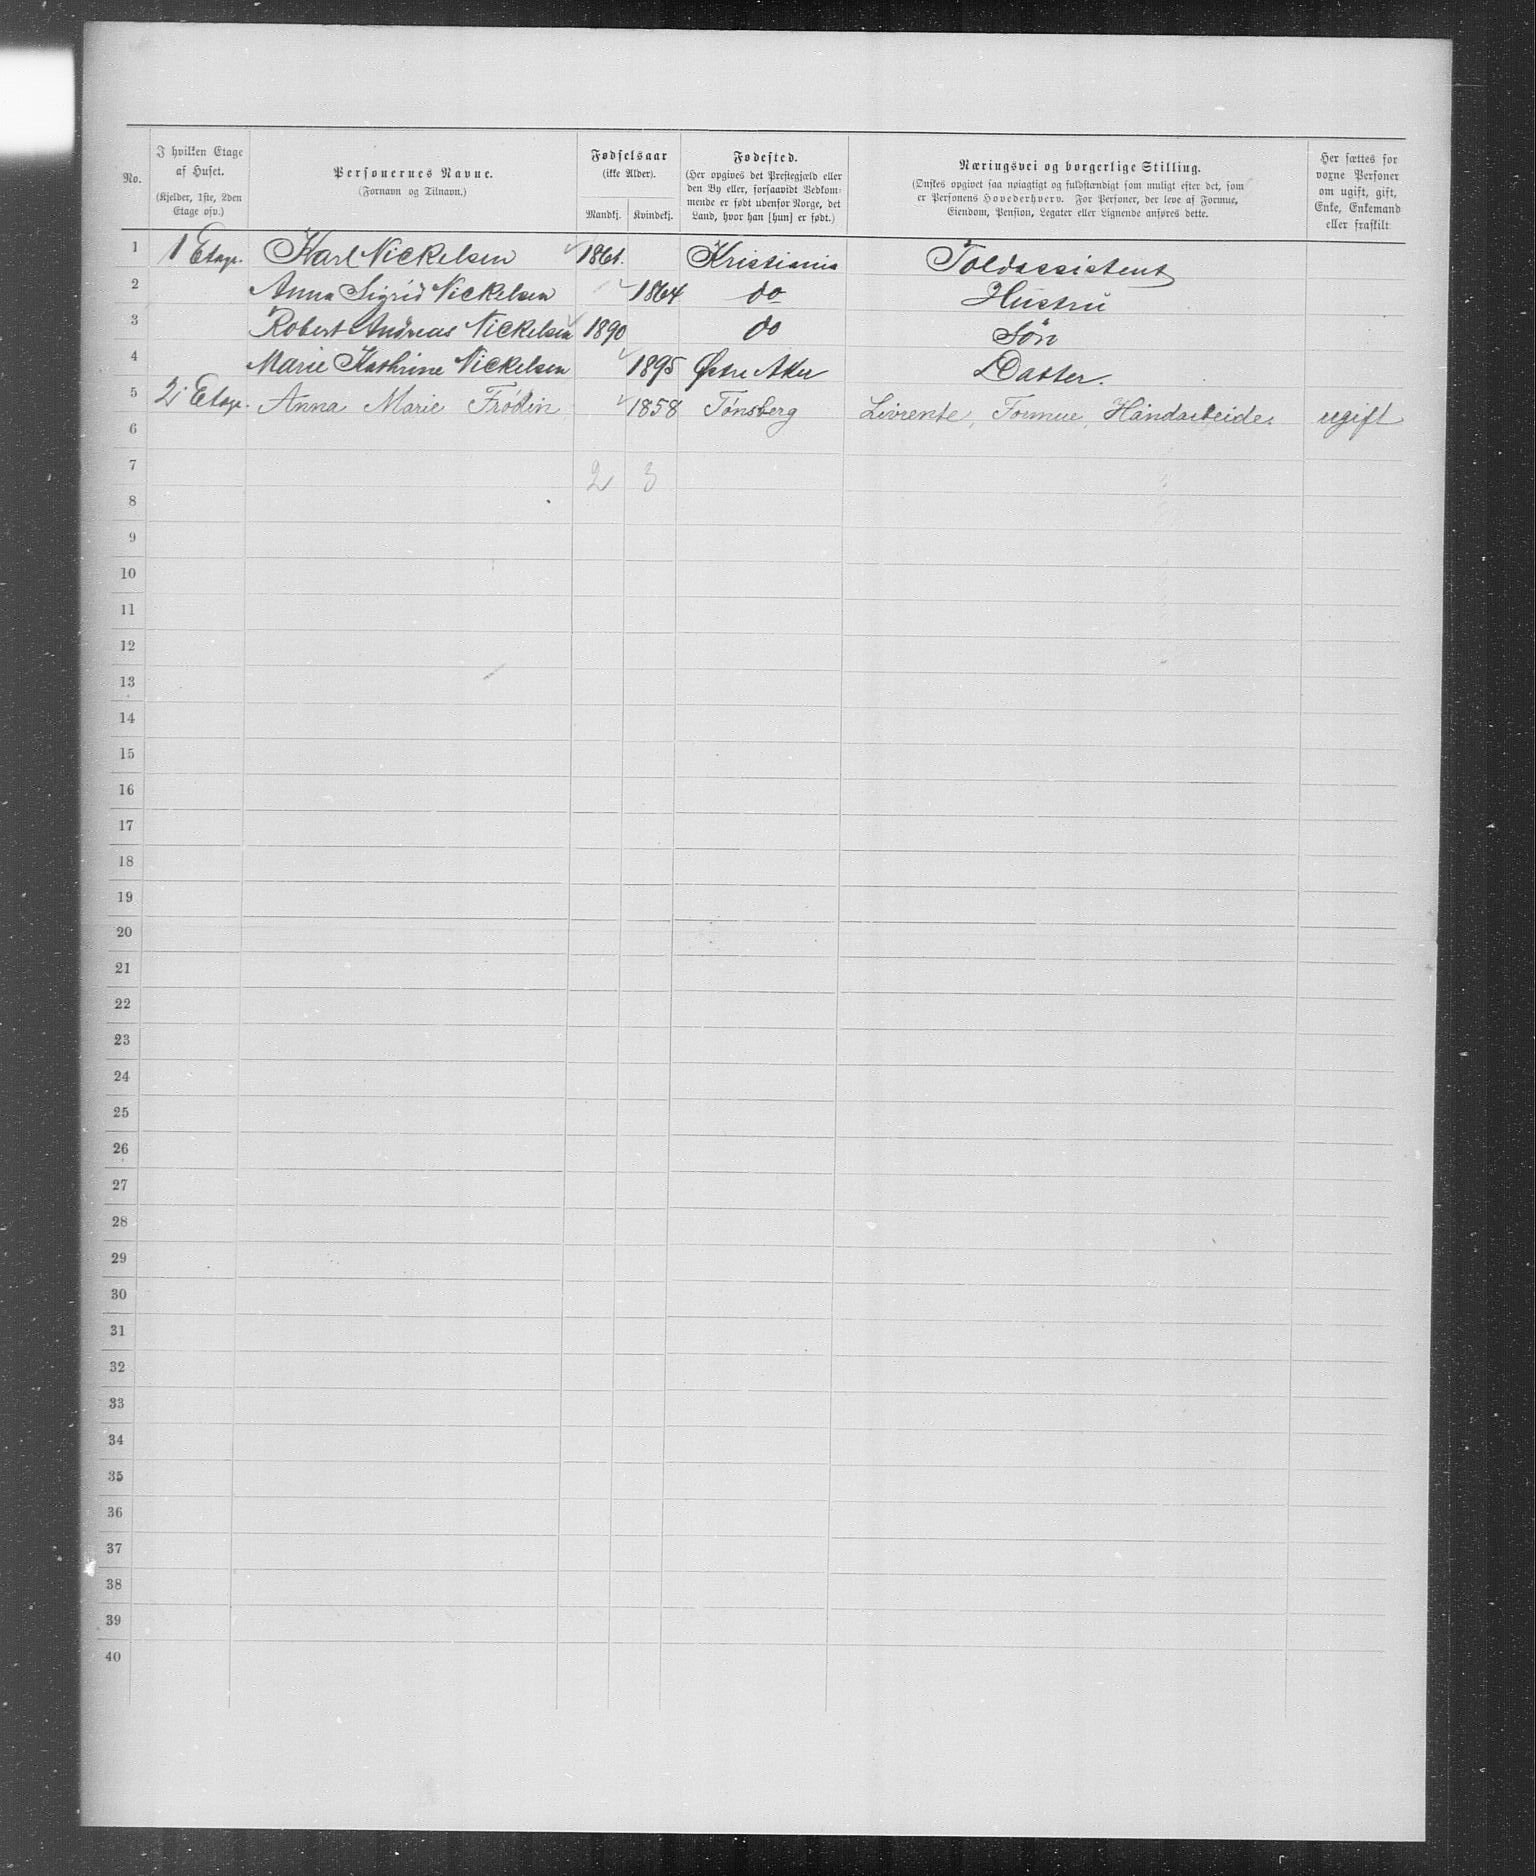 No. | I hvilken Etage af Huset. (Kjelder, 1ste, 2den Etage osv.) | Personernes Navne. (Fornavn og Tilnavn.) | Fødselsaar (ikke Alder). Mandkj. | Kvindekj. | Fødested. (Her opgives det Prestegjæld eller den By eller, forsaavidt Vedkommende er født udenfor Norge, det Land, hvor han [hun] er født.) | Næringsvei og borgerlige Stilling. (Ønskes opgivet saa nøiagtigt og fuldstændigt som muligt efter det, som er Personens Hovederhverv. For Personer, der leve af Formue, Eiendom, Pension, Legater eller Lignende anføres dette. | Her sættes for voxne Personer om ugift, gift, Enke, Enkemand eller fraskilt
1 | 1 Etage. | Karl Nickelsen | 1861. | | Kristiania | Toldassistent
2 | | Anna Sigrid Nickelsen | | 1864 | do | Hustru
3 | | Robert Andreas Nickelsen | 1890 | | do | Søn
4 | | Marie Kathrine Nickelsen | | 1895 | Østre Aker | Datter.
5 | 2. Etage. | Anna Marie Frödin | | 1858 | Tønsberg | Livrente, Formue, Håndarbeide. | ugift
6
7 | | | 2 | 3
8
9
10
11
12
13
14
15
16
17
18
19
20
21
22
23
24
25
26
27
28
29
30
31
32
33
34
35
36
37
38
39
40